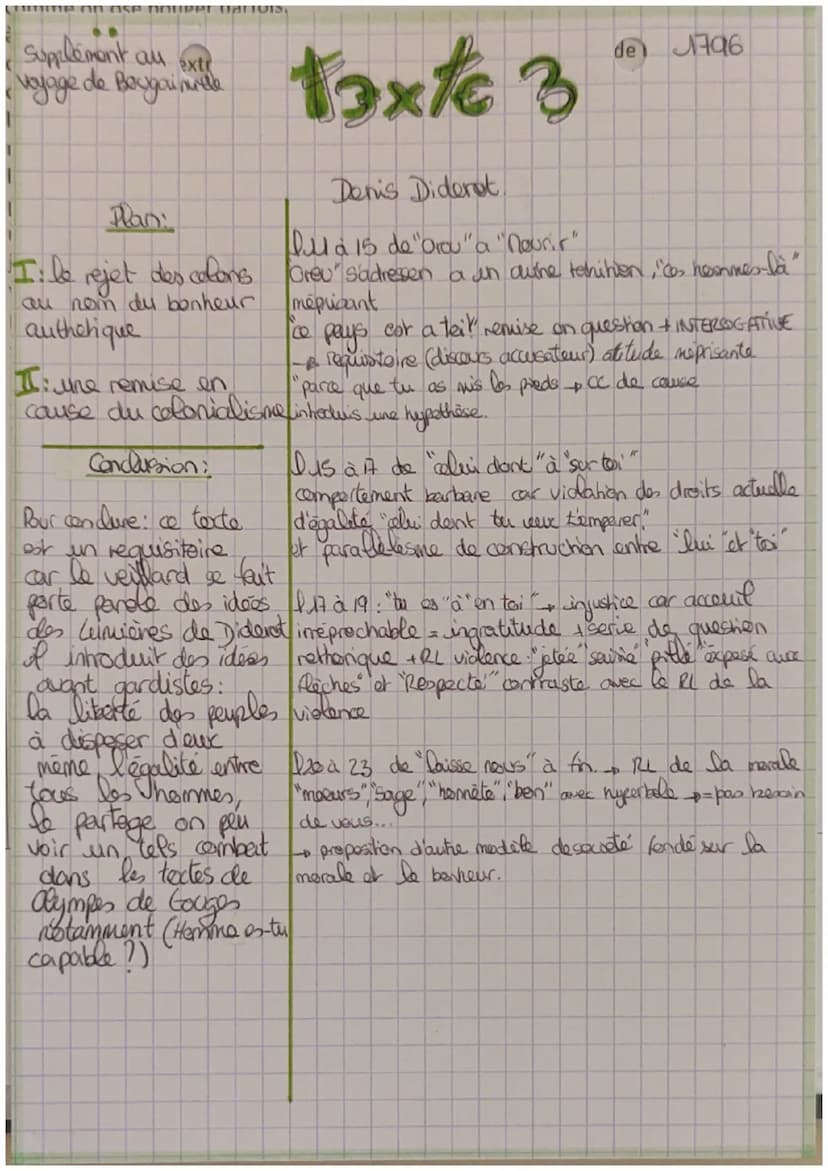 Supplément au
voyage de Bougainville
extr
texte 3
de 1796
Denis Diderot.
Plan:
I: le rejet des colons
au nom du bonheur
authentique
II: une remise en
cause du colonialisme
Conclusion:
Pour conclure: ce texte
est un requisitoire
car le veillard se fait
porte parole des idées
des Lumières de Diderot
il introduit des idées
avant gardistes:
la liberté des peuples
à disposer d'eux
même, l'égalité entre
tous les hommes,
le partage on peu
voir un tels combat
dans les textes de
Olympes de Gouges
notamment (Homme es-tu
capable?)
l.11 à 15 de "Orou" a "nourir"
Orou" s'adressen a un autre tahitien, "ces hommes-là"
méprisant
"ce pays est a toi!" remise en question + INTERROGATIVE
→ requisitoire (discours accusateur) attitude méprisante
"parce que tu as mis les pieds → CC de cause
introduis une hypothèse.
l.15 à 17 de "celui dont" à "sur toi"
comportement barbare car violation des droits actuelle
d'égalité "celui dont tu veux t'emparer"
et parallelesme de construction entre "lui" et "toi"
l.17 à 19: "tu es" à "en toi" → injustice car acceuil
irréprochable = ingratitude + serie de question
rethorique + RL violence: "jetée" "saisie" "pillé" "exposé aux
flèches" et "Respecté" contraste avec le RL de la
violence
l.20 à 23 de "laisse nous" à fin. → RL de la morale
"moeurs", "sage", "honnête", "bon" avec hyperbole → = pas besoin
de vous...
→ proposition d'autre modèle de société fondé sur la
morale et le bonheur.